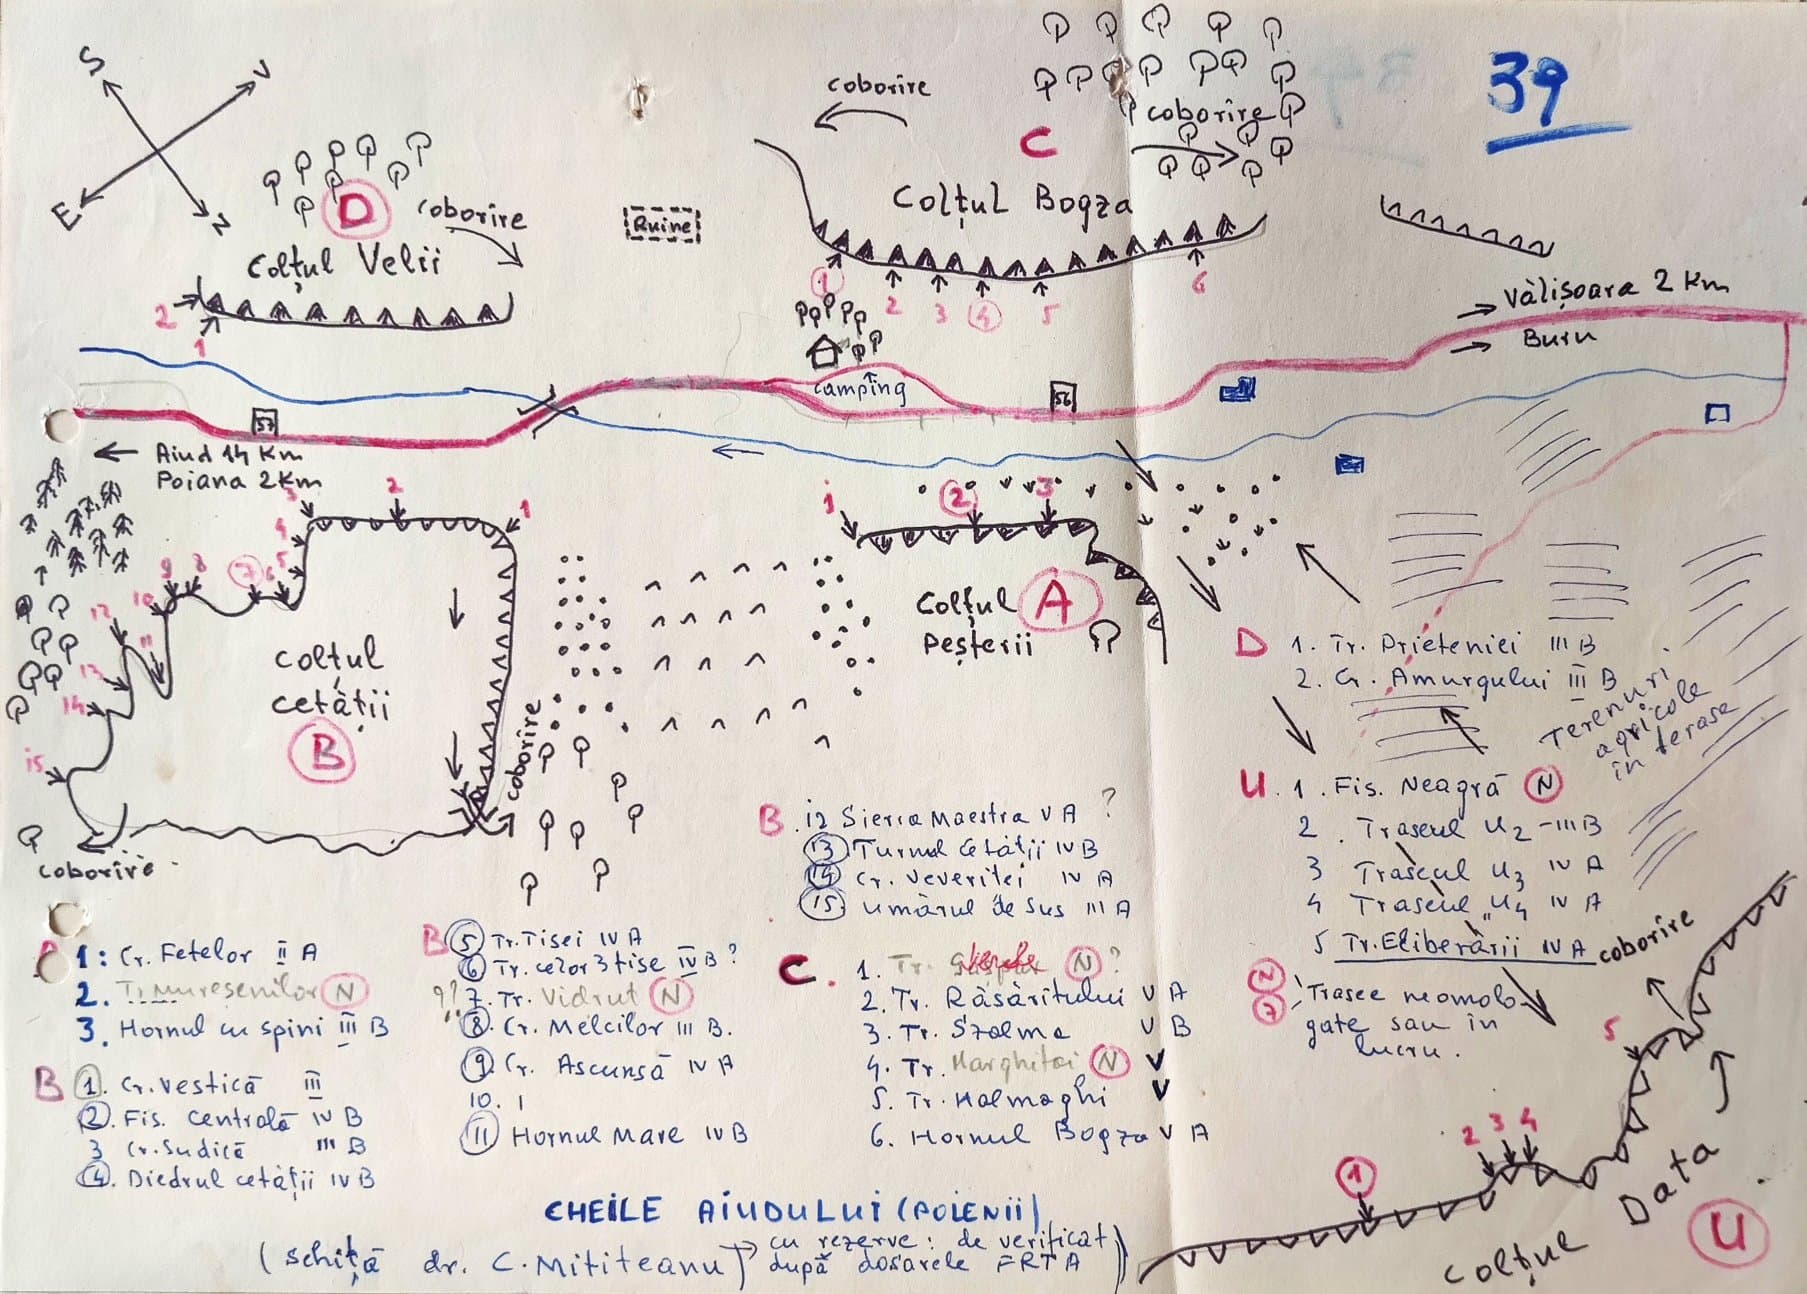 39
S
V
E
N
D
coborire
Colțul Velii
2
1
Ruine
coborire
C
coborire
Colțul Bogza
1
2
3
4
5
6
Vălișoara 2 Km
Buru
camping
57
56
← Aiud 14 Km
Poiana 2 Km
3
2
1
4
5
6
7
8
9
10
11
12
13
14
15
colțul
cetății
B
coborire
coborire
1
2
3
Colțul A
Peșterii
D 1. Tr. Prieteniei III B
2. Cr. Amurgului III B
Terenuri
agricole
în terase
U. 1. Fis. Neagră N
2 Traseul U2 - III B
3 Traseul U3 IV A
4 Traseul U4 IV A
5 Tr. Eliberării IV A
N
7
Trasee neomolo-
gate sau în
lucru.
B. 12 Sierra Maestra V A ?
13 Turnul Cetății IV B
14 Cr. Veveritei IV A
15 Umărul de Sus III A
A 1: Cr. Fetelor II A
2. Tr Muresenilor N
3. Hornul cu spini III B
B 1. Cr. Vestică III
2. Fis. Centrală IV B
3 Cr. Sudică III B
4. Diedrul cetății IV B
B 5 Tr. Tisei IV A
6 Tr. celor 3 tise IV B ?
?? 7. Tr. Vidrut N
8. Cr. Melcilor III B.
9. Cr. Ascunsă IV A
10. 1
11 Hornul Mare IV B
C. 1. Tr. N ?
2. Tr. Răsăritului V A
3. Tr. Szalma V B
4. Tr. Harghitei N V
5. Tr. Halmaghi V
6. Hornul Bogza V A
coborire
5
2 3 4
1
Colțul Data
U
CHEILE AIUDULUI (POIENII)
(schiță dr. C. Mititeanu) → cu rezerve: de verificat
după dosarele FRTA)